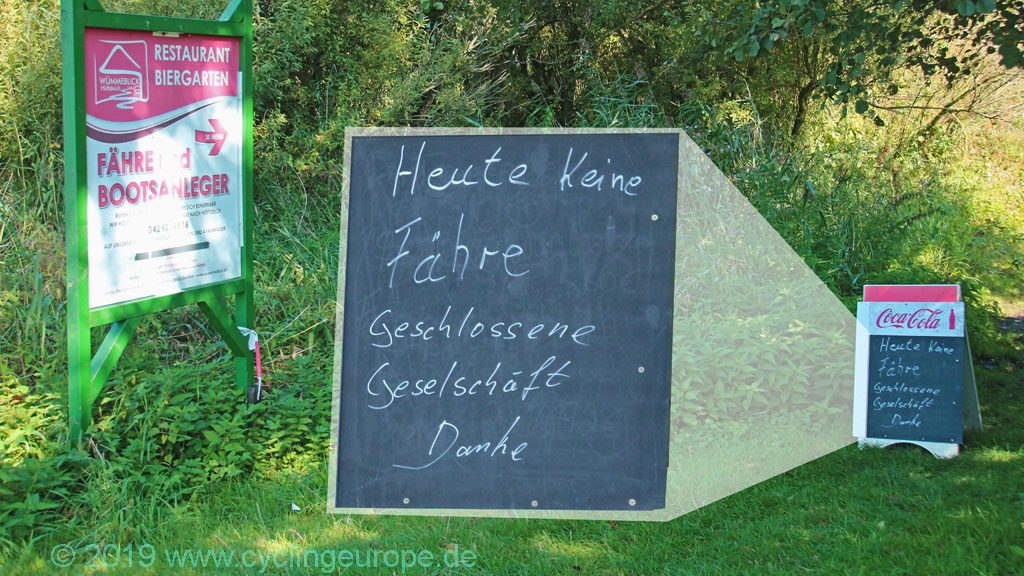 RESTAURANT
BIERGARTEN
WÜMMEBLICK
FÄHRE und
BOOTSANLEGER
04292-9616
Heute Keine
Fähre
Geschlossene
Geselschäft
Danke
Coca-Cola
Heute Keine
Fähre
Geschlossene
Geselschäft
Danke
© 2019 www.cyclingeurope.de